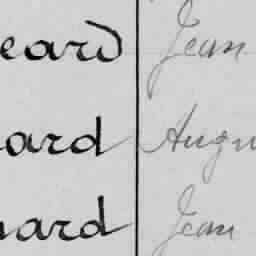 eard Jean
ard Augu
ard Jean